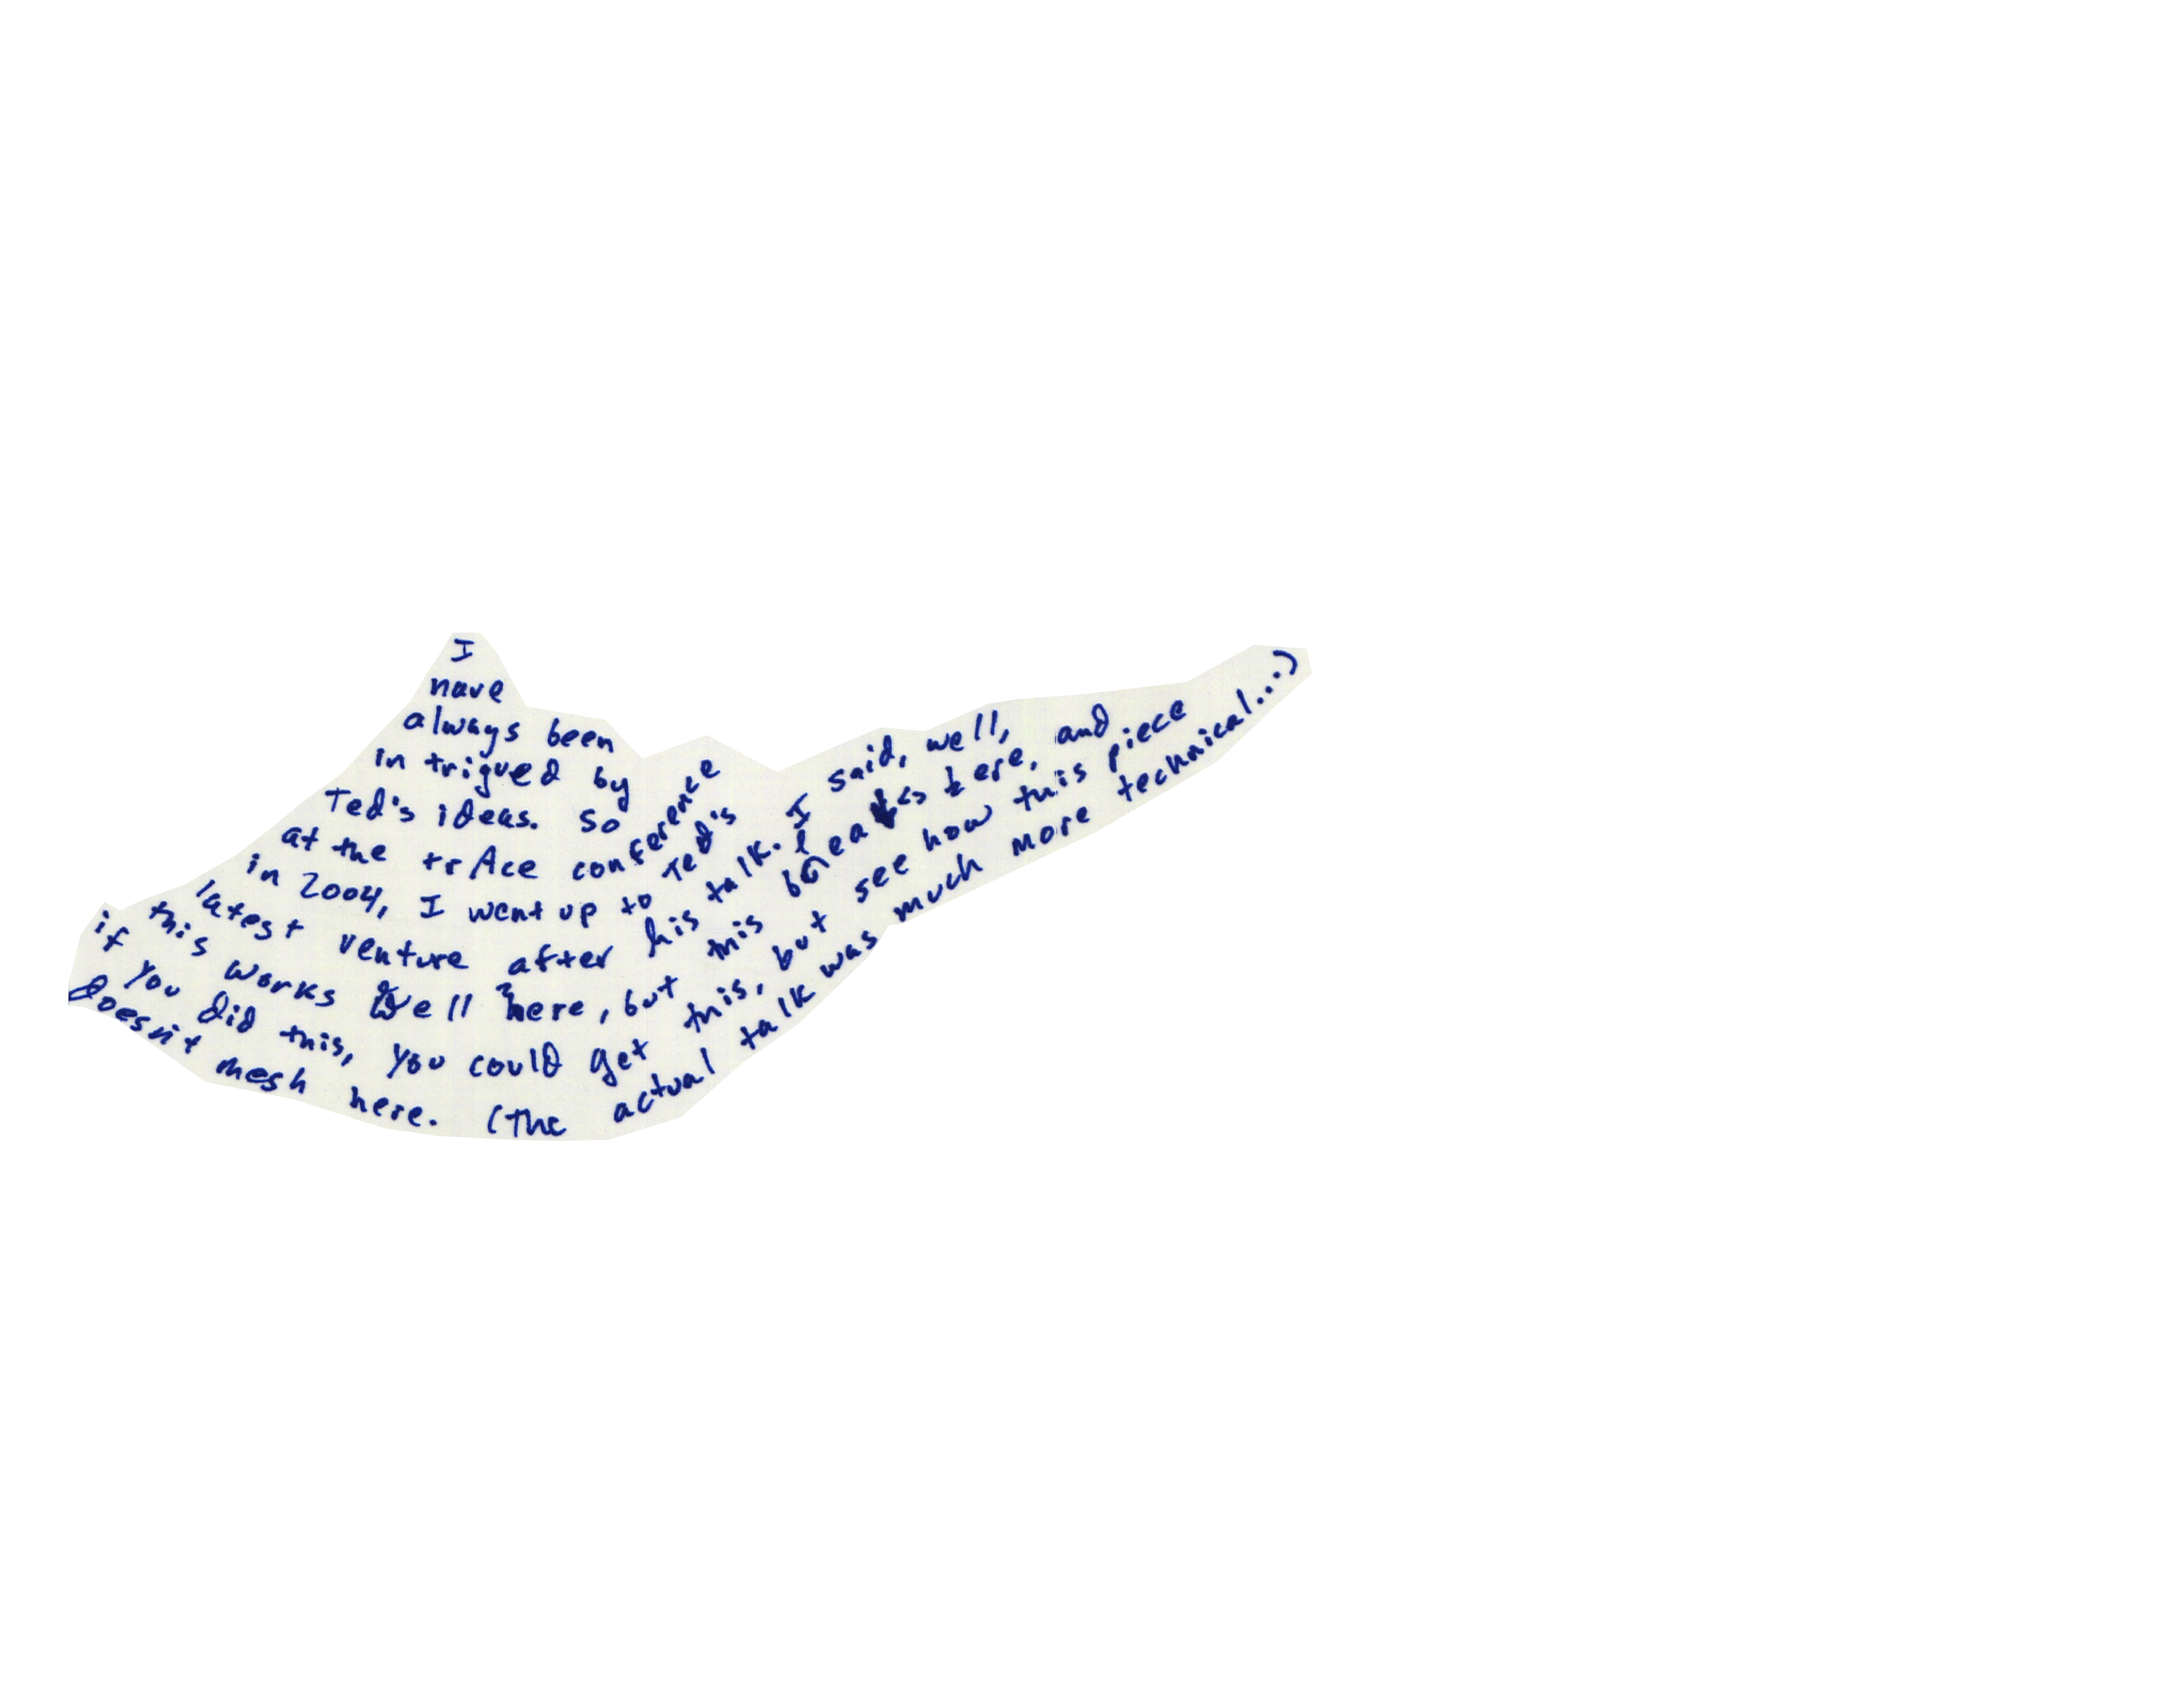 I
have
always been
intrigued by
Ted's ideas. So
at the trAce conference
in 2004, I went up to Ted's
latest venture after his talk. I said, well,
this works well here, but this breaks here, and
if you did this, you could get this, but see how this piece
doesn't mesh here. (The actual talk was much more technical...)